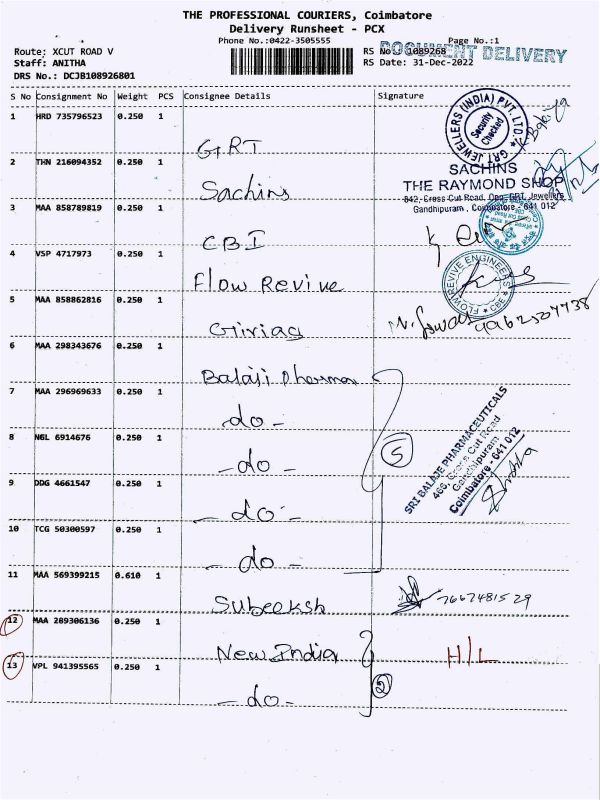 THE PROFESSIONAL COURIERS, Coimbatore
Delivery Runsheet - PCX
Phone No.:0422-3505555
Page No.:1
Route: XCUT ROAD V
RS No 1089268
DOCUMENT DELIVERY
Staff: ANITHA
RS Date: 31-Dec-2022
DRS No.: DCJB108926801
S No Consignment No Weight PCS Consignee Details Signature
1 HRD 735796523 0.250 1
GRT
GRT JEWELLERS (INDIA) PVT. LTD.
Security Checked
2 THN 216094352 0.250 1
Sachins
SACHINS
THE RAYMOND SHOP
842, Cross Cut Road, Opp. GRT Jewellers
Gandhipuram, Coimbatore - 641 012
3 MAA 858789819 0.250 1
CBI
4 VSP 4717973 0.250 1
Flow Revive
FLOW REVIVE ENGINEERS
CBE
5 MAA 858862816 0.250 1
6 MAA 298343676 0.250 1
Balaji Pharma
7 MAA 296969633 0.250 1
- do -
8 NGL 6914676 0.250 1
- do -
5
SRI BALAJE PHARMACEUTICALS
466, Cross Cut Road
Gandhipuram
Coimbatore - 641 012
9 DDG 4661547 0.250 1
- do -
10 TCG 50300597 0.250 1
- do -
11 MAA 569399215 0.610 1
Subeeksh
7667481529
12 MAA 289306136 0.250 1
New India
H/L
13 VPL 941395565 0.250 1
- do -
2